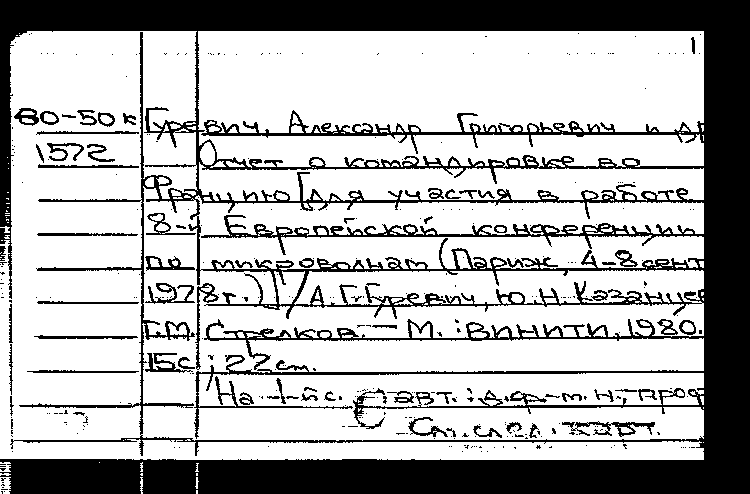 1
80-50к Гуревич, Александр Григорьевич и др
1572 Отчет о командировке во
Францию [для участия в работе
8-й Европейской конференции
по микроволнам (Париж, 4-8 сент
1978г.)] / А.Г. Гуревич, Ю.Н. Казанцев
Г.М. Стрелков. — М. : ВИНИТИ, 1980.
15с ; 22 см.
На 1-й с. авт. : д.ф.-м.н., проф
См. след. карт.